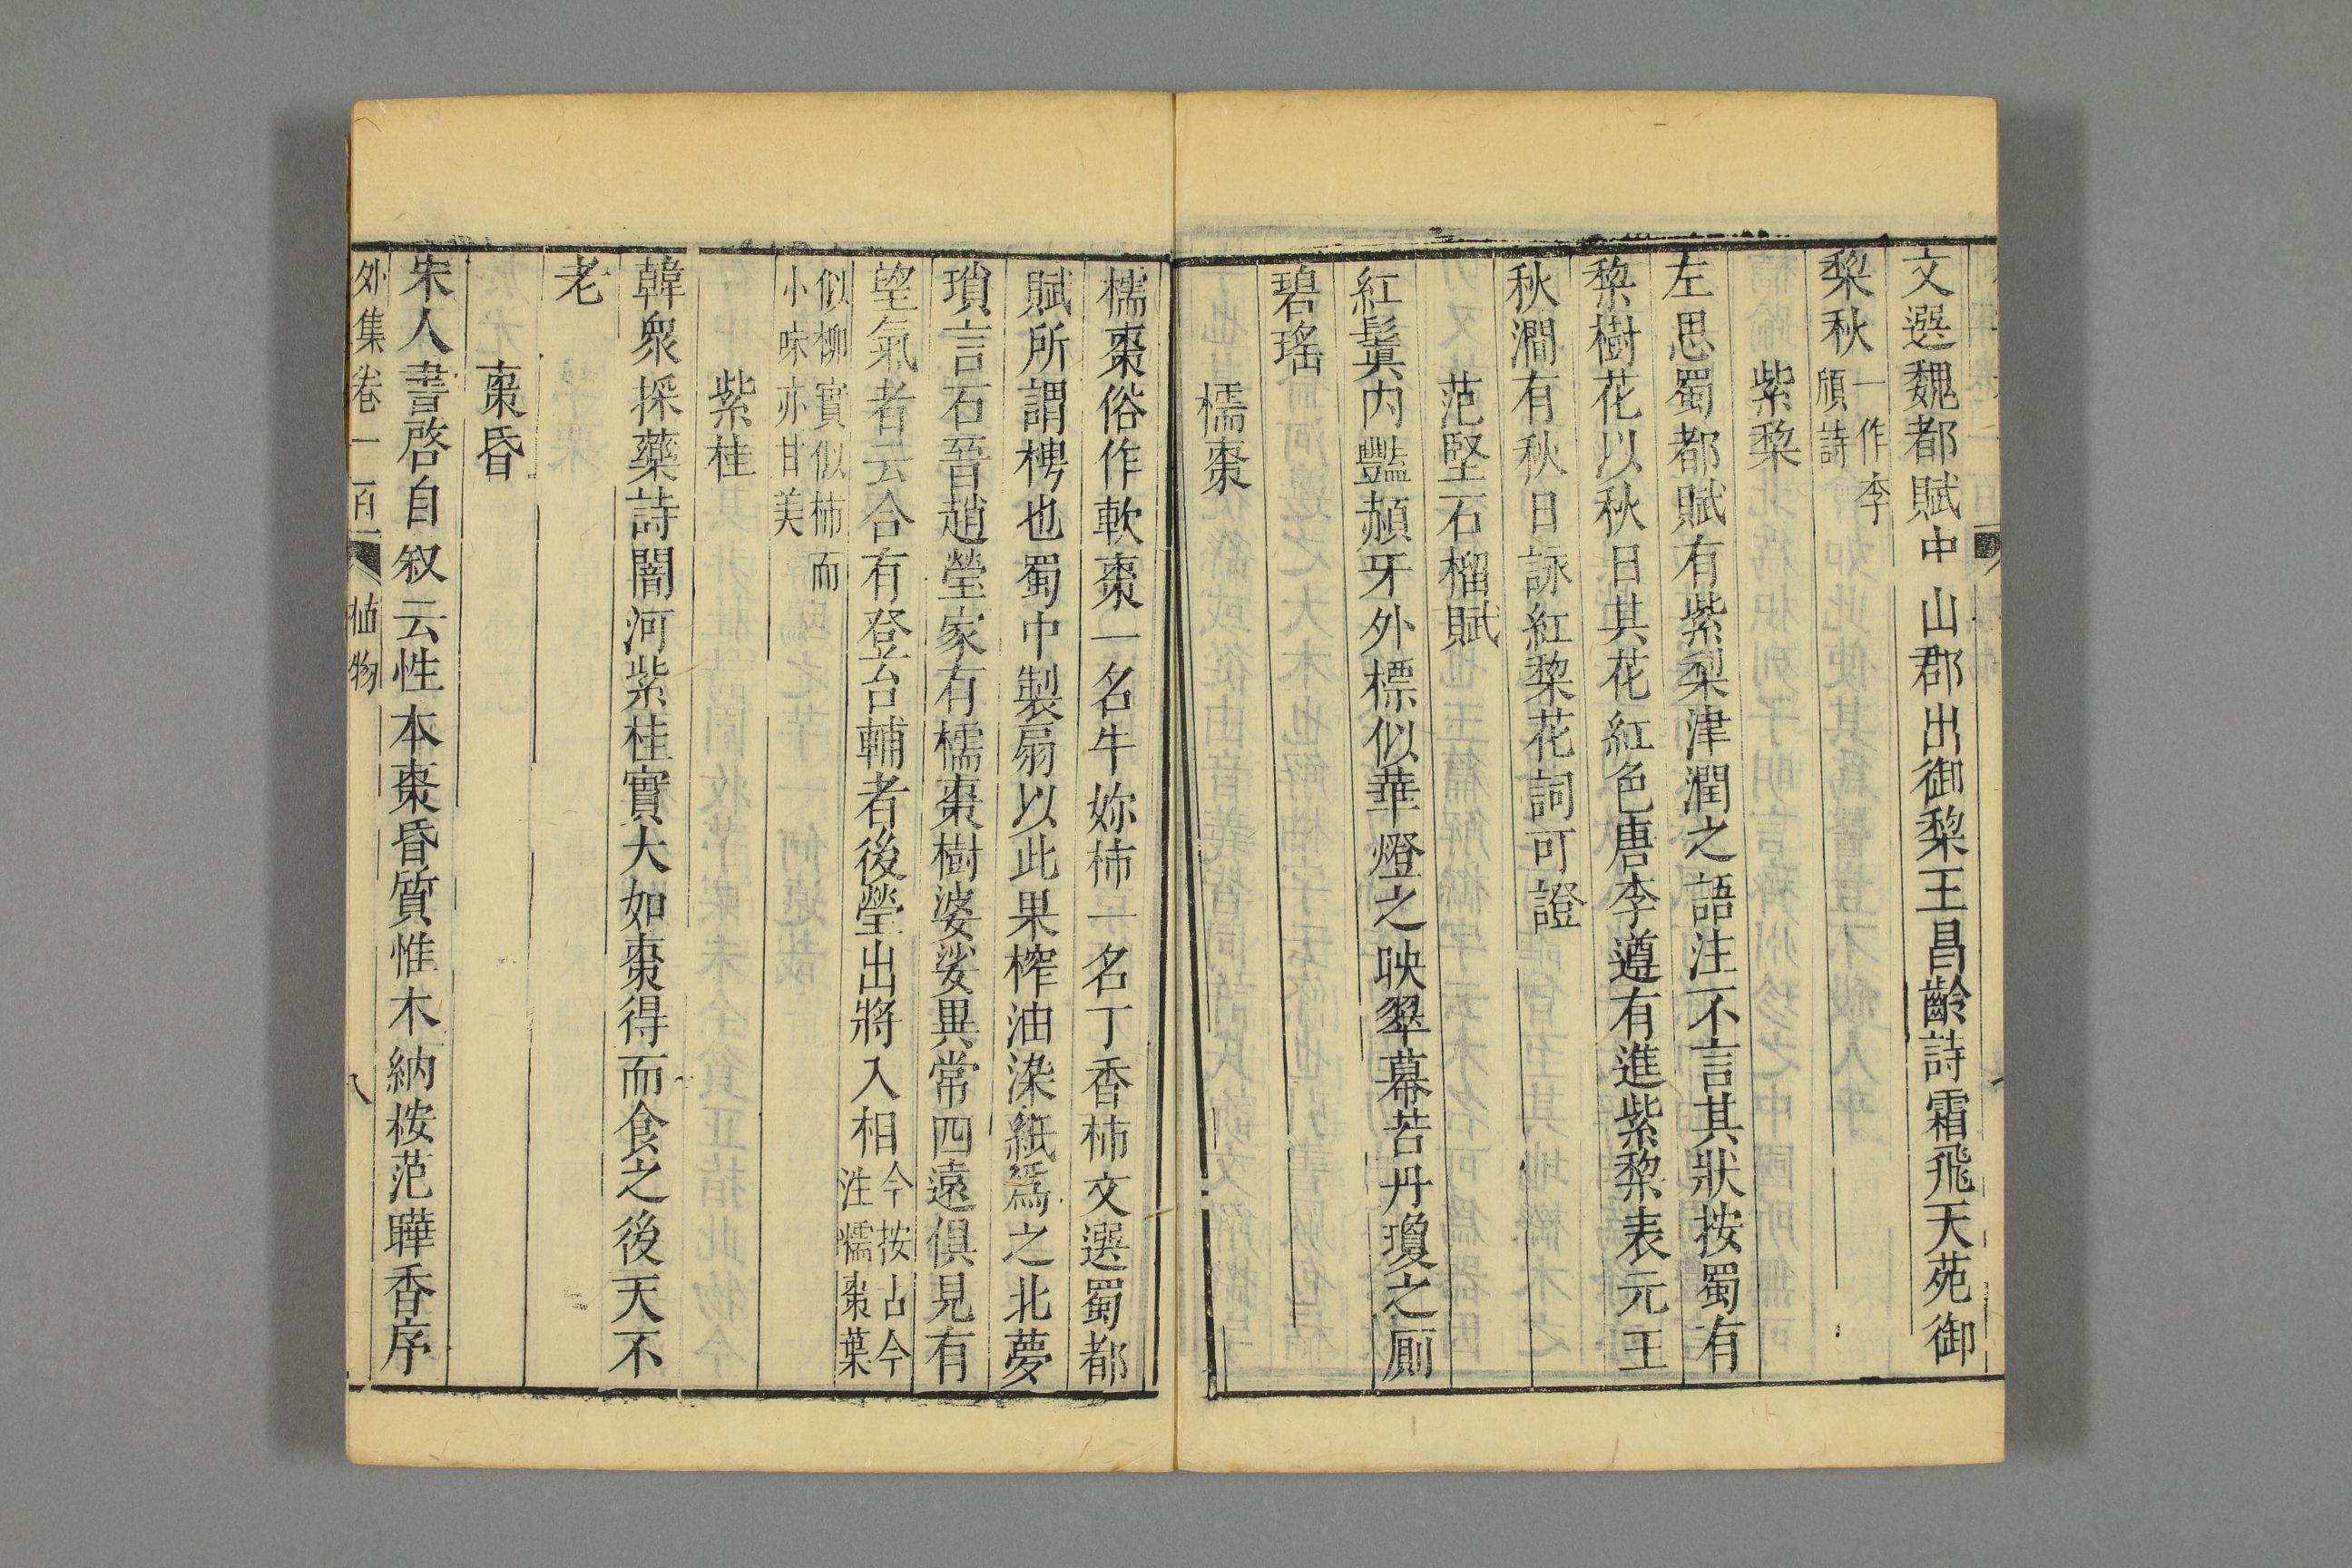 文選魏都賦中山郡出御棃王昌齡詩霜飛天苑御
棃秋一作李頎詩
紫棃
左思蜀都賦有紫梨津潤之語注不言其狀按蜀有
棃樹花以秋日其花紅色唐李遵有進紫棃表元王
秋澗有秋日詠紅棃花詞可證
范堅石榴賦
紅鬚內豔赬牙外標似華燈之映翠幕若丹瓊之廁
碧瑤
檽棗
檽棗俗作軟棗一名牛妳柿一名丁香柿文選蜀都
賦所謂梬也蜀中製扇以此果榨油染紙爲之北夢
瑣言石晉趙瑩家有檽棗樹婆娑異常四遠俱見有
望氣者云合有登台輔者後瑩出將入相今按古今注檽棗葉
似柳實似柿而小味亦甘美
紫桂
韓衆採藥詩闇河紫桂實大如棗得而食之後天不
老
棗昏
宋人書啓自叙云性本棗昏質惟木納桉范曄香序
外集卷一百一 植物 八